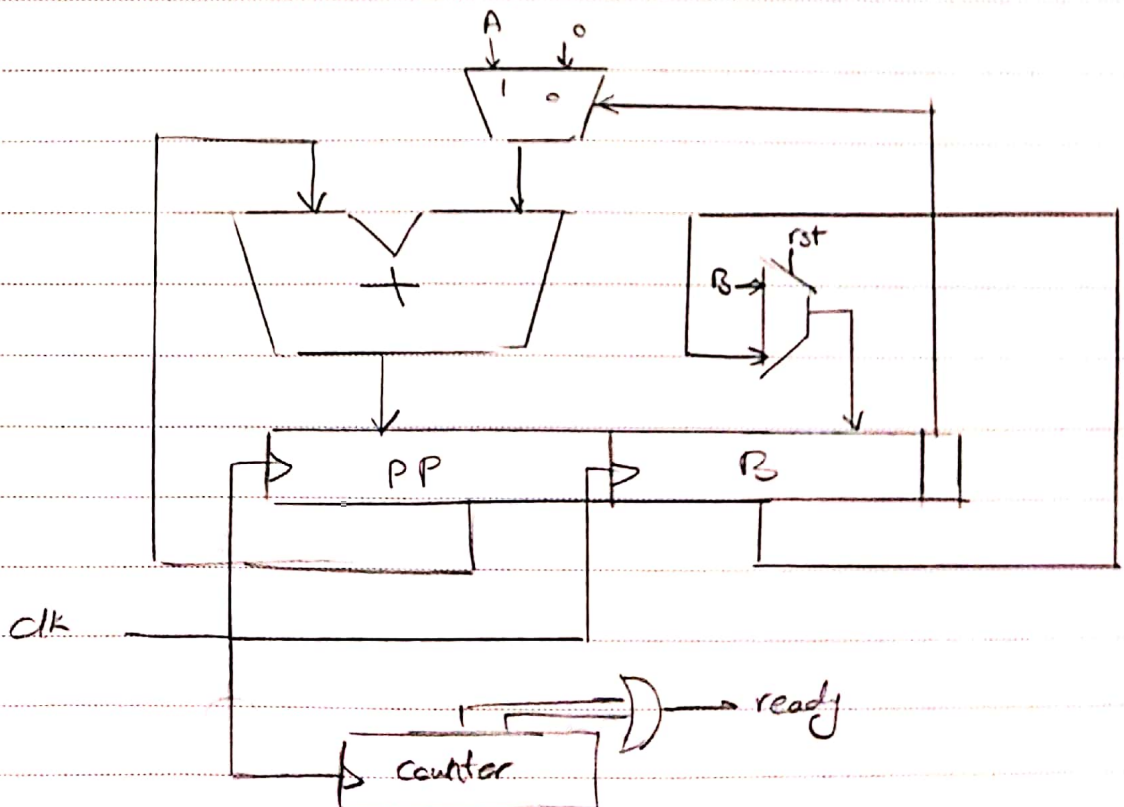 A 0
1 0
rst
B
+
PP B
Clk
ready
Counter